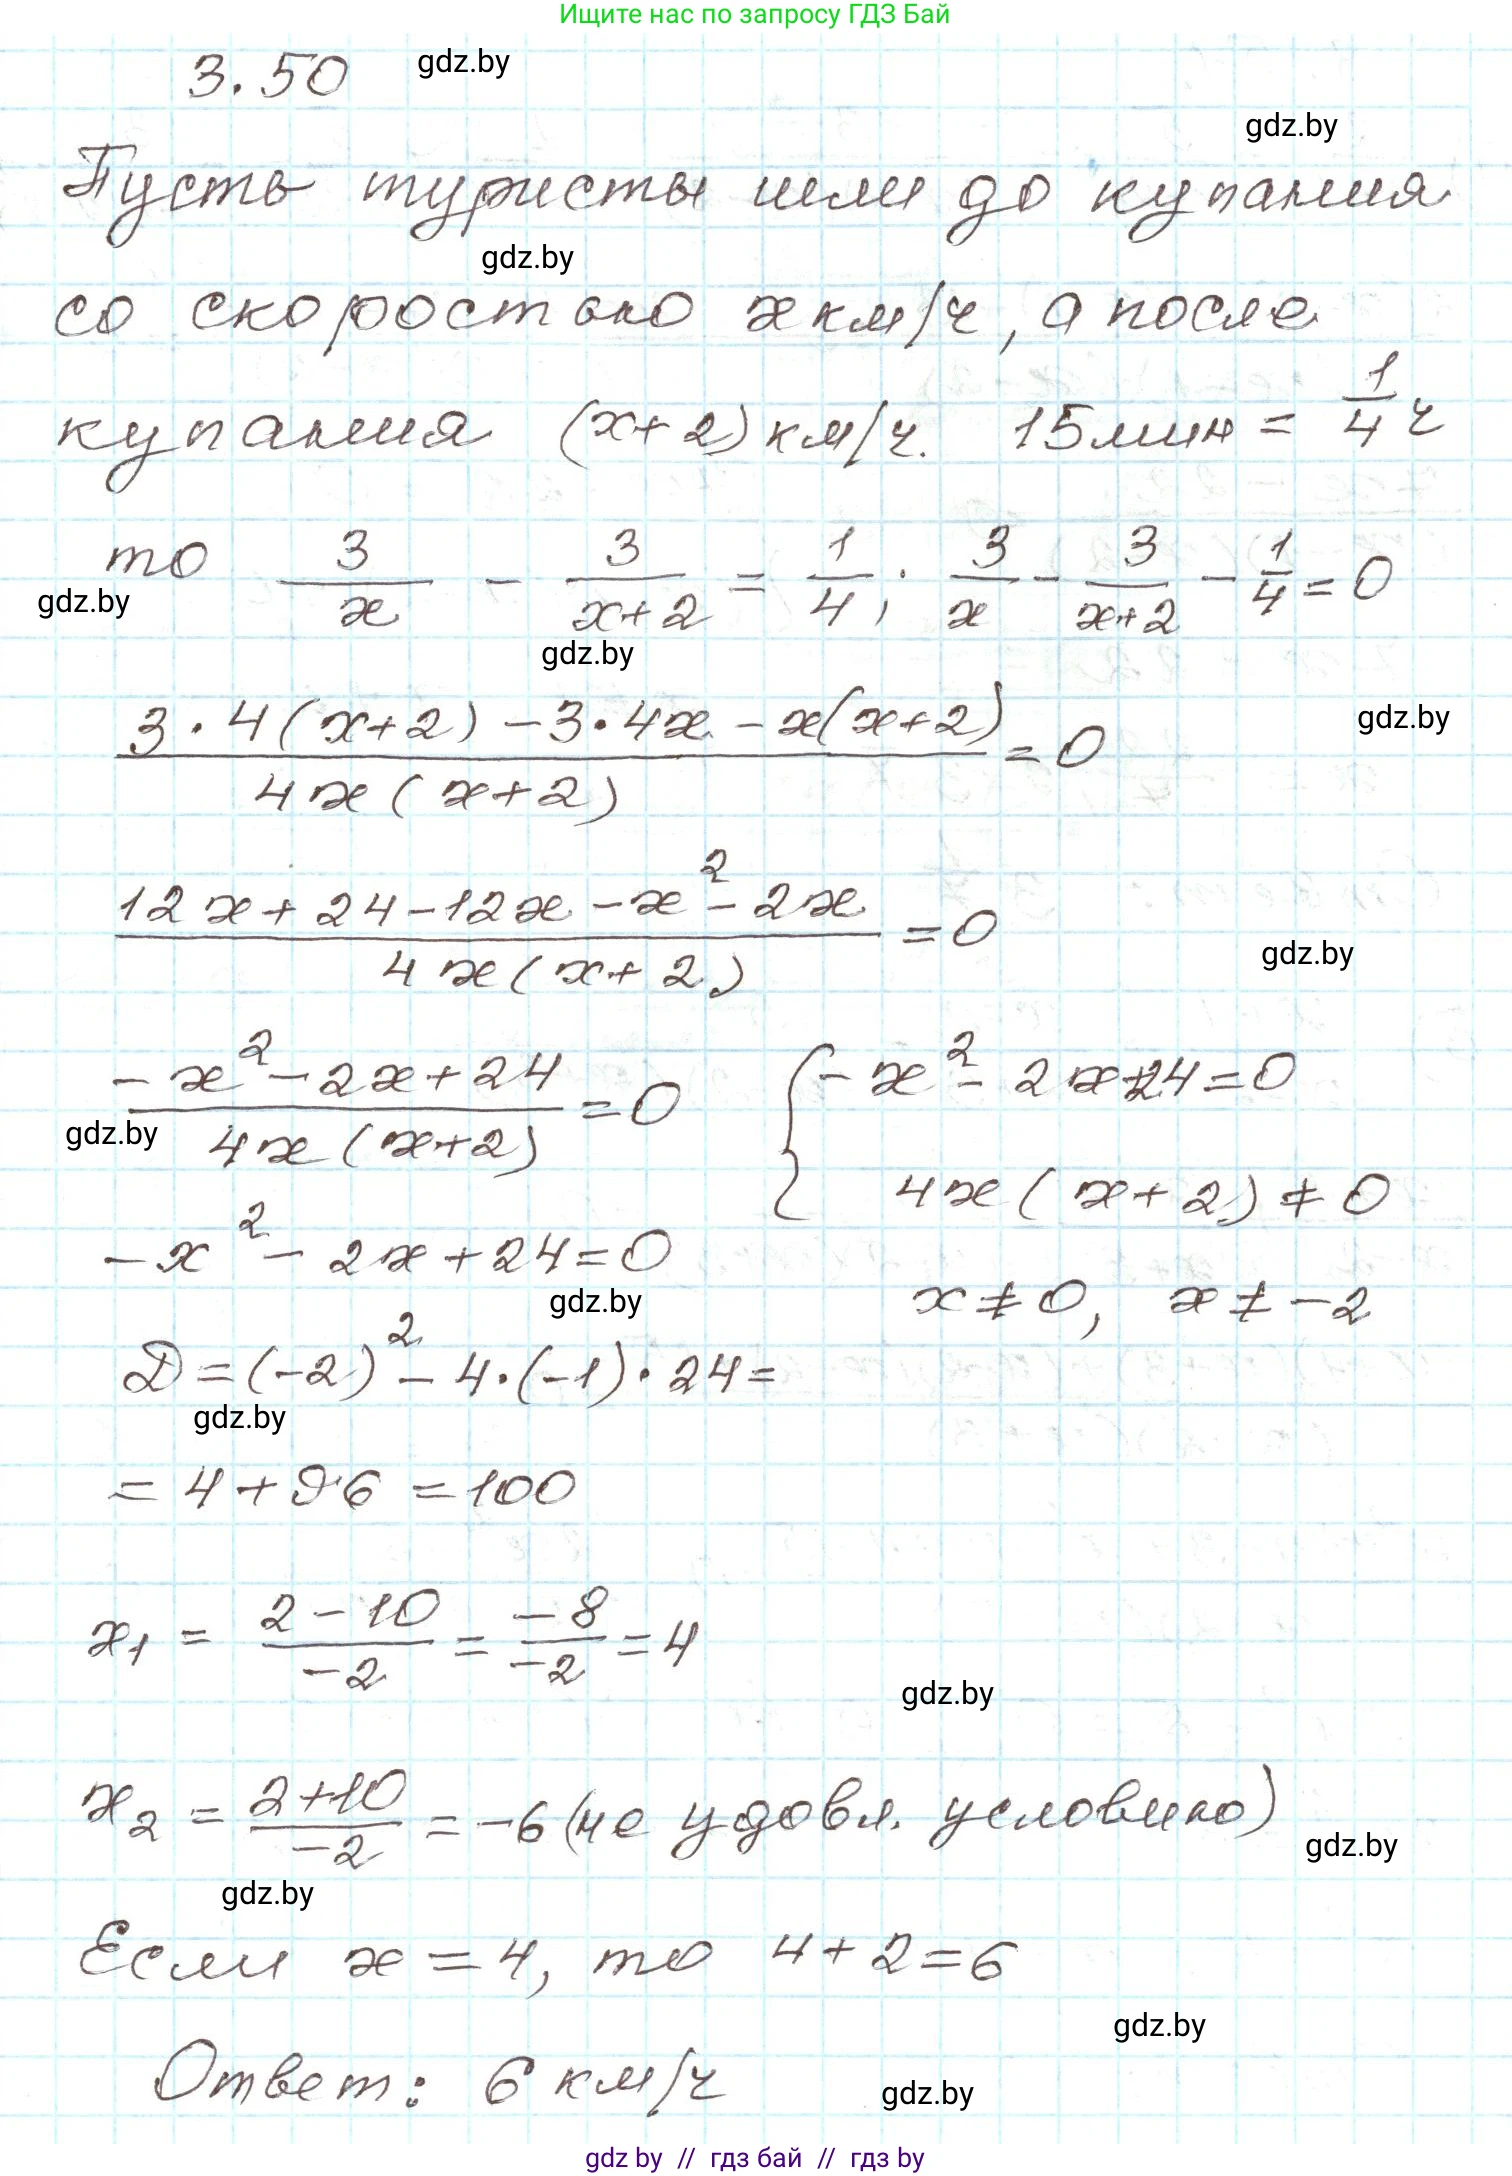 Ищите нас по запросу ГДЗ Бай
3.50
gdz.by
gdz.by
Пусть туристы шли до купания
gdz.by
со скоростью x км/ч, а после
купания (x+2) км/ч. 15мин = 1/4 ч
то 3/x - 3/(x+2) = 1/4; 3/x - 3/(x+2) - 1/4 = 0
gdz.by
gdz.by
(3·4(x+2) - 3·4x - x(x+2))/(4x(x+2)) = 0
gdz.by
(12x + 24 - 12x - x² - 2x)/(4x(x+2)) = 0
gdz.by
(-x² - 2x + 24)/(4x(x+2)) = 0 { -x² - 2x + 24 = 0
gdz.by
4x(x+2) ≠ 0
-x² - 2x + 24 = 0
gdz.by
x ≠ 0, x ≠ -2
D = (-2)² - 4·(-1)·24 =
gdz.by
= 4 + 96 = 100
x₁ = (2-10)/(-2) = (-8)/(-2) = 4
gdz.by
x₂ = (2+10)/(-2) = -6 (не удовл. условию)
gdz.by
gdz.by
Если x = 4, то 4+2=6
gdz.by
Ответ: 6 км/ч
gdz.by
gdz by // гдз бай // гдз by